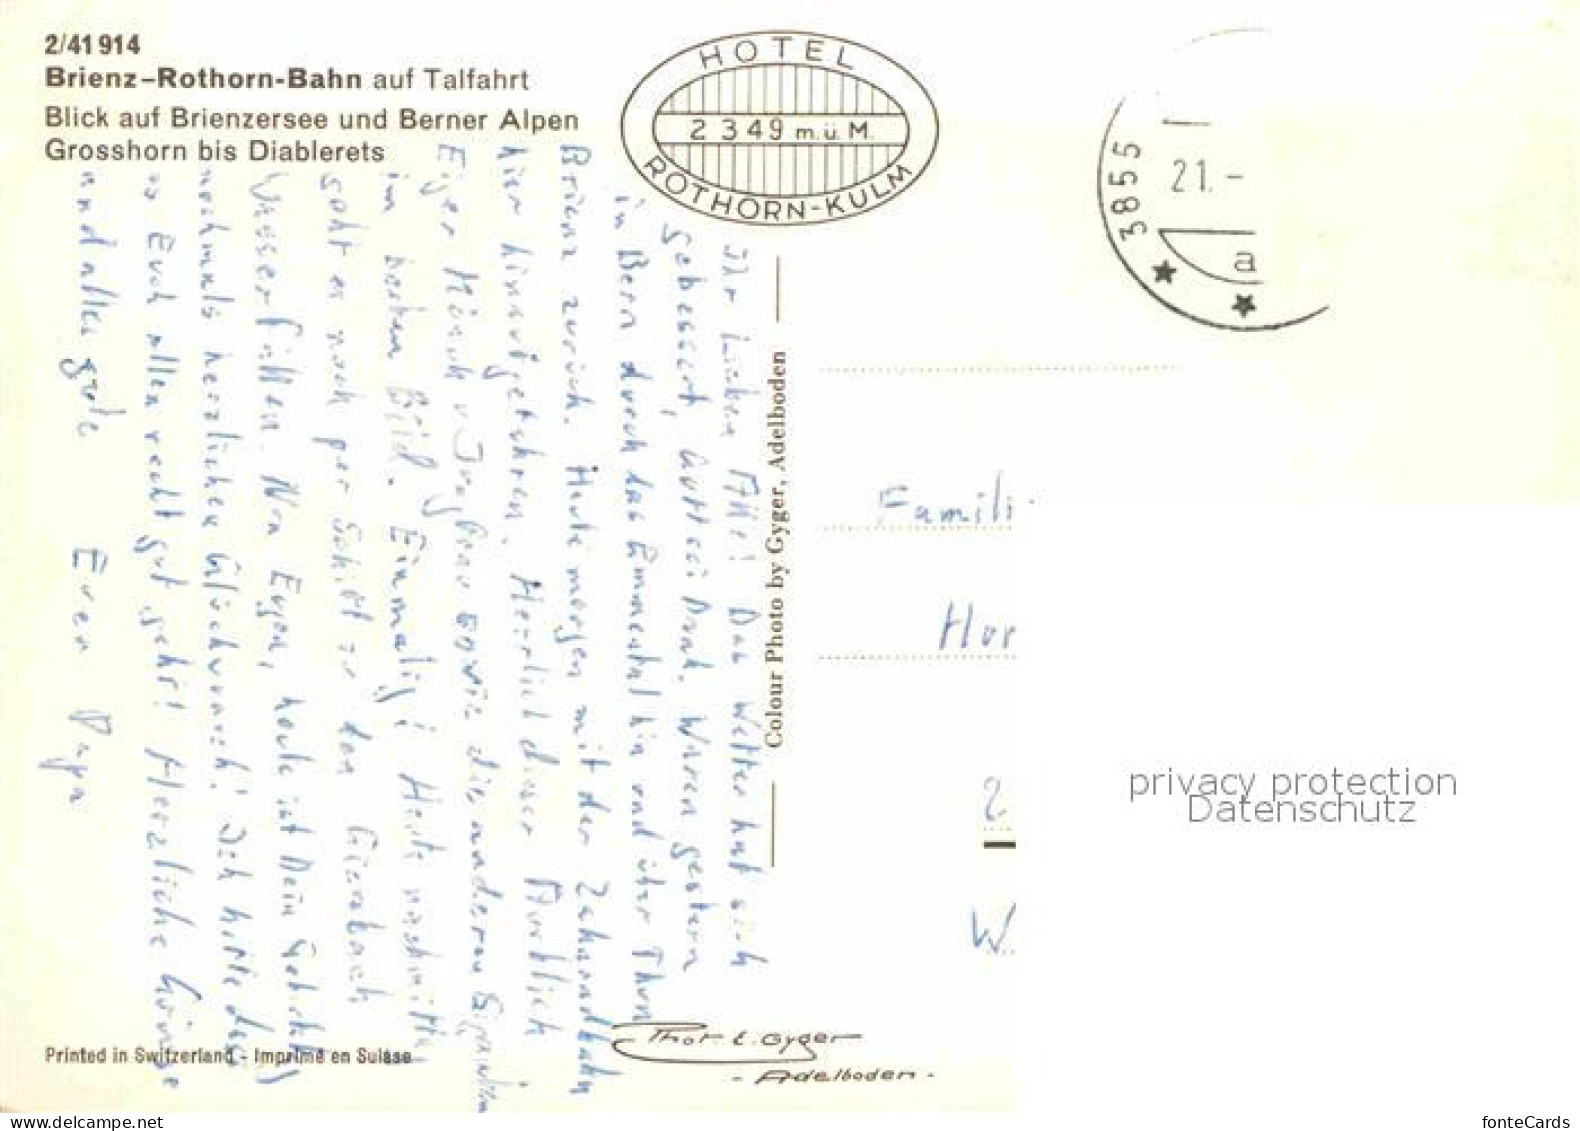 2/41914
Brienz–Rothorn-Bahn auf Talfahrt
Blick auf Brienzersee und Berner Alpen
Grosshorn bis Diablerets
HOTEL
2349 m.ü.M.
ROTHORN-KULM
3855
21.-
a
Ihr Lieben Alle! Das Wetter hat sich
gebessert, Gott sei Dank. Waren gestern
in Bern durch das Emmental hin und über Thun
Brienz zurück. Heute morgen mit der Zahnradbahn
hier hinaufgefahren. Herrlich dieser Ausblick
Eiger Mönch u. Jungfrau sowie die anderen
im besten Bild. Einmalig! Heute nachmittag
geht es noch per Schiff zu den Giessbach
Wasserfällen. Nun Eugen, heute ist Dein Geburtstag
nochmals herzlichen Glückwunsch! Ich hoffe dass
es Euch allen recht gut geht! Herzliche Grüsse
und alles gute Euer Papa
Colour Photo by Gyger, Adelboden
Famili
Hor
2
W.
privacy protection
Datenschutz
Phot. E. Gyger
- Adelboden -
Printed in Switzerland - Imprimé en Suisse
www.delcampe.net
fonteCards